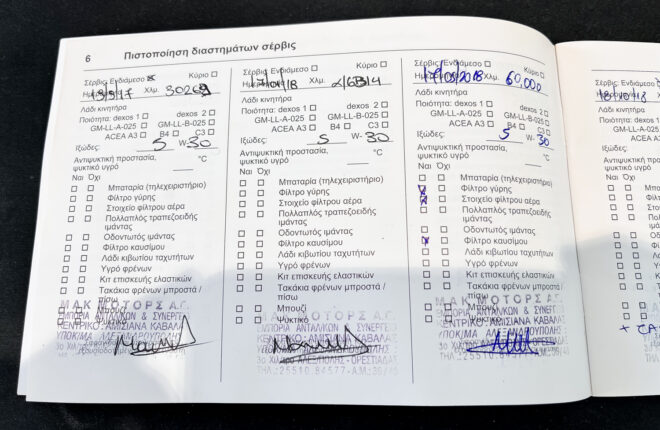 6 Πιστοποίηση διαστημάτων σέρβις
Σέρβις: Ενδιάμεσο ☒ Κύριο ☐
Ημερομηνία Χλμ. 30269
Λάδι κινητήρα
Ποιότητα: dexos 1 ☐ dexos 2 ☐
GM-LL-A-025 ☐ GM-LL-B-025 ☐
ACEA A3 ☐ B4 ☐ C3 ☐
Ιξώδες: 5 W- 30
Αντιψυκτική προστασία, ψυκτικό υγρό °C
Ναι Όχι
☐ ☐ Μπαταρία (τηλεχειριστήριο)
☐ ☐ Φίλτρο γύρης
☐ ☐ Στοιχείο φίλτρου αέρα
☐ ☐ Πολλαπλός τραπεζοειδής ιμάντας
☐ ☐ Οδοντωτός ιμάντας
☐ ☐ Φίλτρο καυσίμου
☐ ☐ Λάδι κιβωτίου ταχυτήτων
☐ ☐ Υγρό φρένων
☐ ☐ Κιτ επισκευής ελαστικών
☐ ☐ Τακάκια φρένων μπροστά / πίσω
☐ ☐ Μπουζί
☐ ☐ Ψυκτικό
ΜΑΚ ΜΟΤΟΡΣ Α.Ε.
ΕΜΠΟΡΙΑ ΑΝΤΑΛ/ΚΩΝ & ΣΥΝΕΡΓ
ΚΕΝΤΡΙΚΟ: ΑΜΙΣΙΑΝΑ ΚΑΒΑΛΑΣ
ΥΠΟΚ/ΜΑ ΑΛΕΞΑΝΔΡΟΥΠΟΛΗΣ
Σέρβις: Ενδιάμεσο ☐ Κύριο ☐
Ημερομηνία Χλμ.
Λάδι κινητήρα
Ποιότητα: dexos 1 ☐ dexos 2 ☐
GM-LL-A-025 ☐ GM-LL-B-025 ☐
ACEA A3 ☐ B4 ☐ C3 ☐
Ιξώδες: 5 W- 30
Αντιψυκτική προστασία, ψυκτικό υγρό °C
Ναι Όχι
☐ ☐ Μπαταρία (τηλεχειριστήριο)
☐ ☐ Φίλτρο γύρης
☐ ☐ Στοιχείο φίλτρου αέρα
☐ ☐ Πολλαπλός τραπεζοειδής ιμάντας
☐ ☐ Οδοντωτός ιμάντας
☐ ☐ Φίλτρο καυσίμου
☐ ☐ Λάδι κιβωτίου ταχυτήτων
☐ ☐ Υγρό φρένων
☐ ☐ Κιτ επισκευής ελαστικών
☐ ☐ Τακάκια φρένων μπροστά / πίσω
☐ ☐ Μπουζί
☐ ☐ Ψυκτικό
ΕΜΠΟΡΙΑ ΑΝΤΑΛ/ΚΩΝ & ΣΥΝΕΡΓΕΙΟ
ΚΕΝΤΡΙΚΟ: ΑΜΙΣΙΑΝΑ ΚΑΒΑΛΑΣ
3ο Χλμ ΑΛΕΞ/ΠΟΛΗΣ - ΟΡΕΣΤΙΑΔΑΣ
ΤΗΛ.: 25510.84577 - Α.Μ.: 39/45
Σέρβις: Ενδιάμεσο ☐ Κύριο ☐
Ημερομηνία 17/09/2018 Χλμ. 60,000
Λάδι κινητήρα
Ποιότητα: dexos 1 ☐ dexos 2 ☐
GM-LL-A-025 ☐ GM-LL-B-025 ☐
ACEA A3 ☐ B4 ☐ C3 ☐
Ιξώδες: 5 W- 30
Αντιψυκτική προστασία, ψυκτικό υγρό °C
Ναι Όχι
☐ ☐ Μπαταρία (τηλεχειριστήριο)
☒ ☐ Φίλτρο γύρης
☒ ☐ Στοιχείο φίλτρου αέρα
☐ ☐ Πολλαπλός τραπεζοειδής ιμάντας
☐ ☐ Οδοντωτός ιμάντας
☒ ☐ Φίλτρο καυσίμου
☐ ☐ Λάδι κιβωτίου ταχυτήτων
☐ ☐ Υγρό φρένων
☐ ☐ Κιτ επισκευής ελαστικών
☐ ☐ Τακάκια φρένων μπροστά / πίσω
☐ ☐ Μπουζί
☐ ☐ Ψυκτικό
ΜΑΚ ΜΟΤΟΡΣ Α.Ε.
ΕΜΠΟΡΙΑ ΑΝΤΑΛ/ΚΩΝ & ΣΥΝΕΡΓΕΙΟ
ΚΕΝΤΡΙΚΟ: ΑΜΙΣΙΑΝΑ ΚΑΒΑΛΑΣ
ΥΠΟΚ/ΜΑ ΑΛΕΞΑΝΔΡΟΥΠΟΛΗΣ
ΤΗΛ.: 25510.84577 - Α.Μ.: 39/45
Σέρβις: Ενδιάμ
Λάδι κινητήρα
Ποιότητα: dexo
GM-LL-A-
ACEA
Ιξώδες:
Αντιψυκτική π
ψυκτικό υγρό
Ναι Όχι